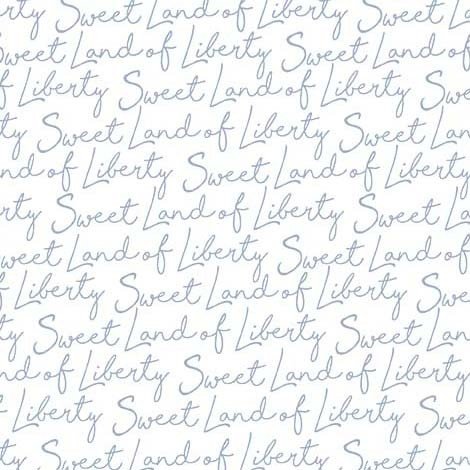 rty Sweet Land of Liberty Sw
of Liberty Sweet Land of
rty Sweet Land of Liberty Sw
and of Liberty Sweet Land of
rty Sweet Land of Liberty Swe
and of Liberty Sweet Land of
of Liberty Sweet Land of
rty Sweet Land of Liberty Sw
and of Liberty Sweet Land of
of Liberty Sweet Land of
rty Sweet Land of Liberty Sw